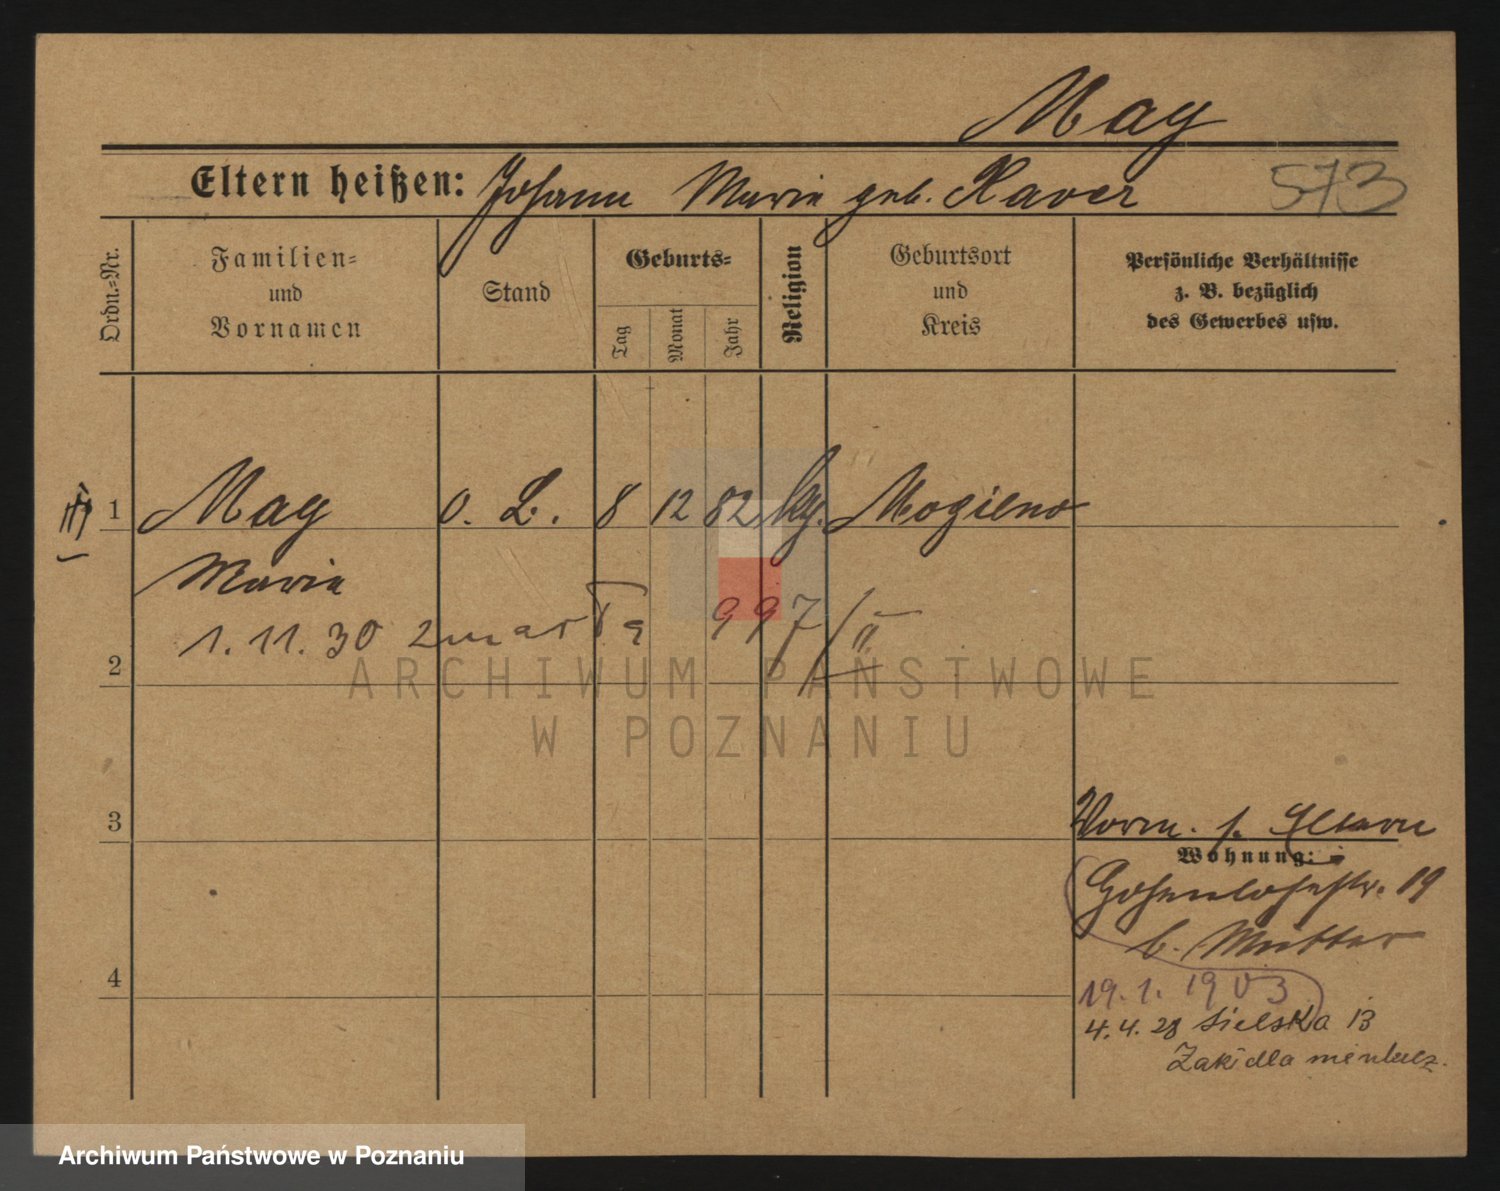 May
Eltern heißen: Johann Marie geb. Xaver
573
Ordn.-Nr.
Familien-
und
Vornamen
Stand
Geburts-
Tag
Monat
Jahr
Religion
Geburtsort
und
Kreis
Persönliche Verhältnisse
z. B. bezüglich
des Gewerbes usw.
1 May o. B. 8 12 82 kg. Mogieno
Marie
1.11.30 zmarła 997/II
2
ARCHIWUM PAŃSTWOWE
W POZNANIU
3
Vorm. s. Eltern
Wohnung:
Hohenlohestr. 19
b. Mutter
19.1.1903
4
4.4.28 Sielska 13
Zakł dla
Archiwum Państwowe w Poznaniu